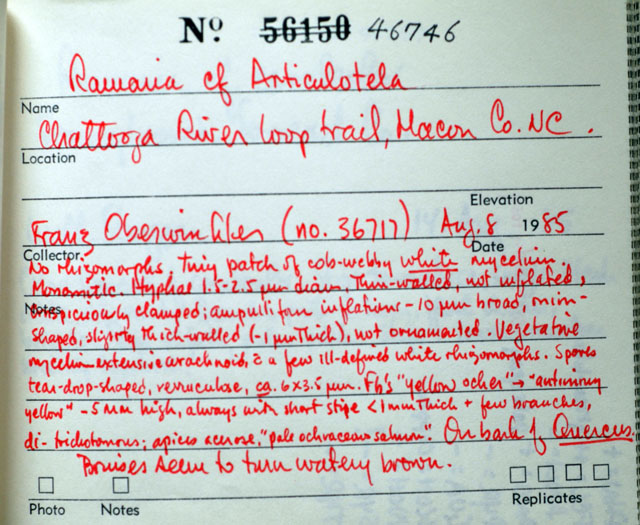 Nº 56150 46746
Ramaria cf Articulotela
Name
Chattooga River loop trail, Macon Co. NC.
Location
Elevation
Franz Oberwinkler (no. 36717) Aug. 8 1985
Collector Date
No rhizomorphs, tiny patch of cob-webby white mycelium.
Monomitic. Hyphae 1.5-2.5 µm diam, thin-walled, not inflated,
Notes
conspicuously clamped; ampulliform inflations - 10 µm broad, onion-
shaped, slightly thick-walled (-1 µm thick), not ornamented. Vegetative
mycelium extensive arachnoid, a few ill-defined white rhizomorphs. Spores
tear-drop-shaped, verruculose, ca. 6x3.5 µm. Fb's "yellow ocher" → "antimony
yellow" - 5 mm high, always with short stipe <1 mm thick + few branches,
di- trichotomous; apices acerose, "pale ochraceous salmon". On bark of Quercus.
Bruises seem to turn watery brown.
Photo Notes Replicates